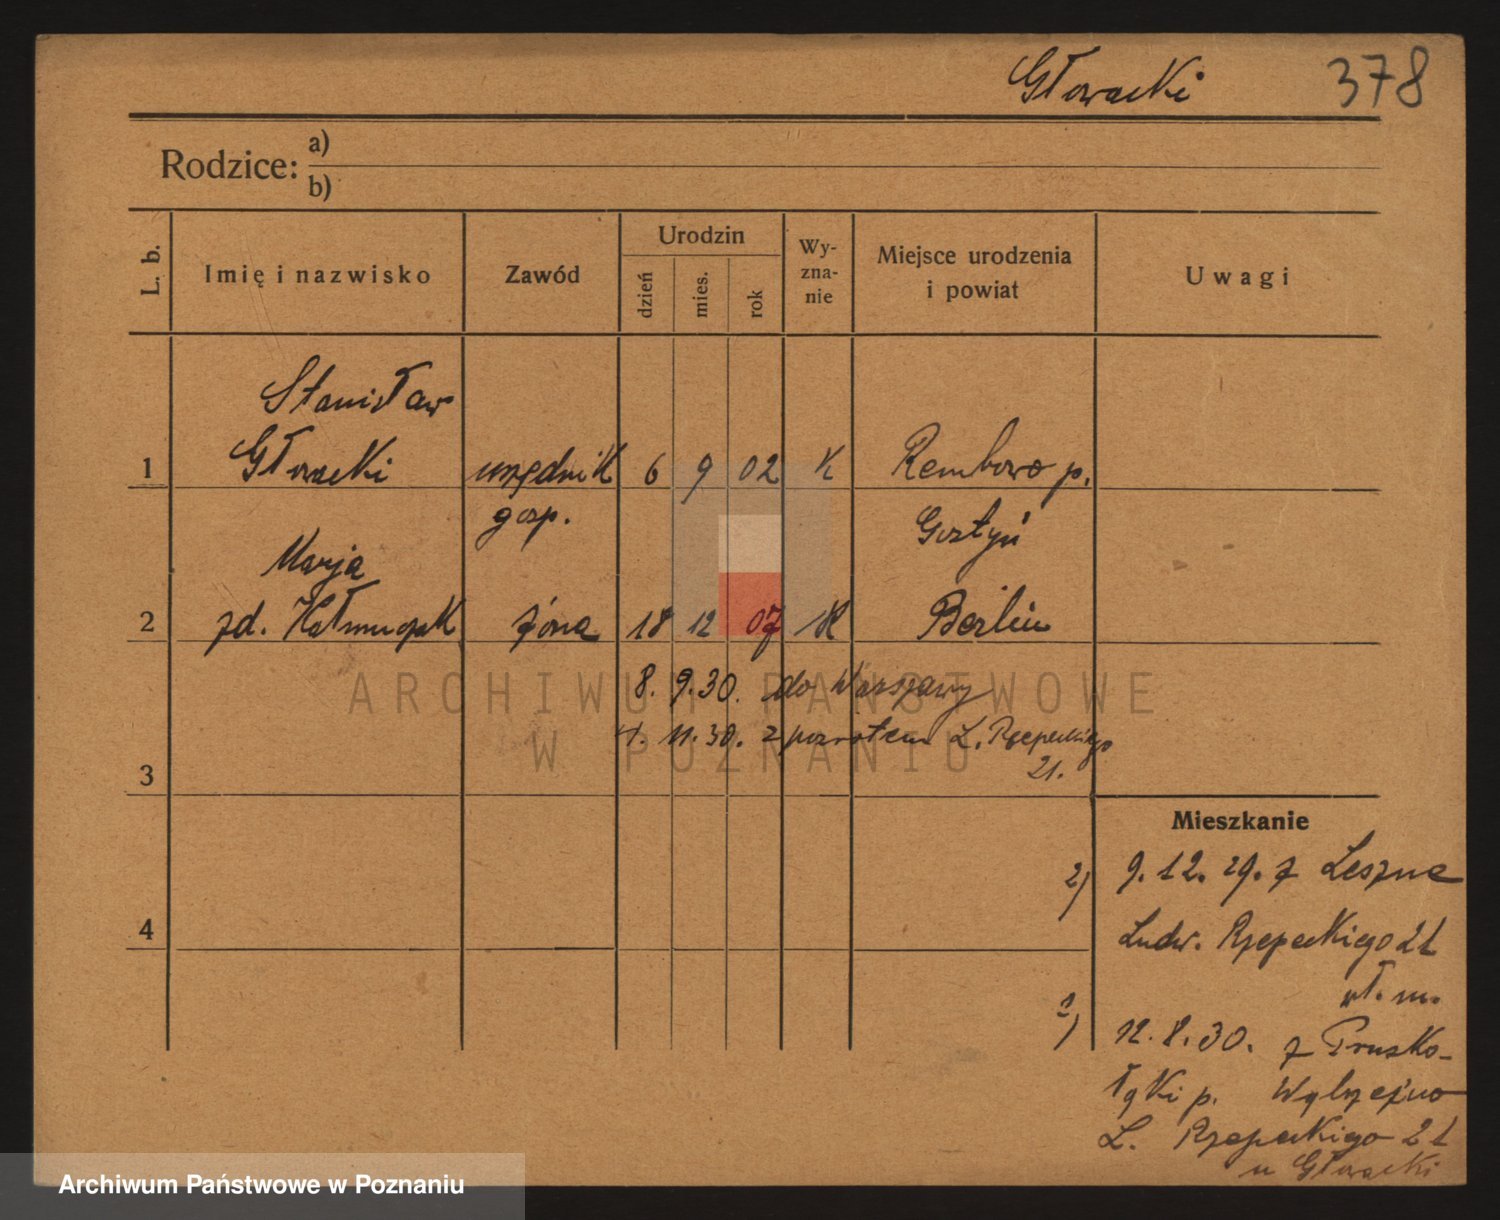 Głowacki 378
Rodzice: a)
b)
L. b. Imię i nazwisko Zawód Urodzin dzień mies. rok Wy-zna-nie Miejsce urodzenia i powiat Uwagi
Stanisław
1 Głowacki urzędnik 6 9 02 K Rembowo p.
gosp. Gostyń
Marja
2 zd. Kałmuczak żona 18 12 07 K Berlin
8. 9. 30. do Warszawy
4. 11. 30. z powrotem L. Rzepeckiego
21.
3
Mieszkanie
2) 9. 12. 29. z Leszna
4 Ludw. Rzepeckiego 21
wł. m.
1) 12. 8. 30. z Prusko-
łąki p. Wąbrzeźno
L. Rzepeckiego 21
u Głowacki
ARCHIWUM PAŃSTWOWE
W POZNANIU
Archiwum Państwowe w Poznaniu